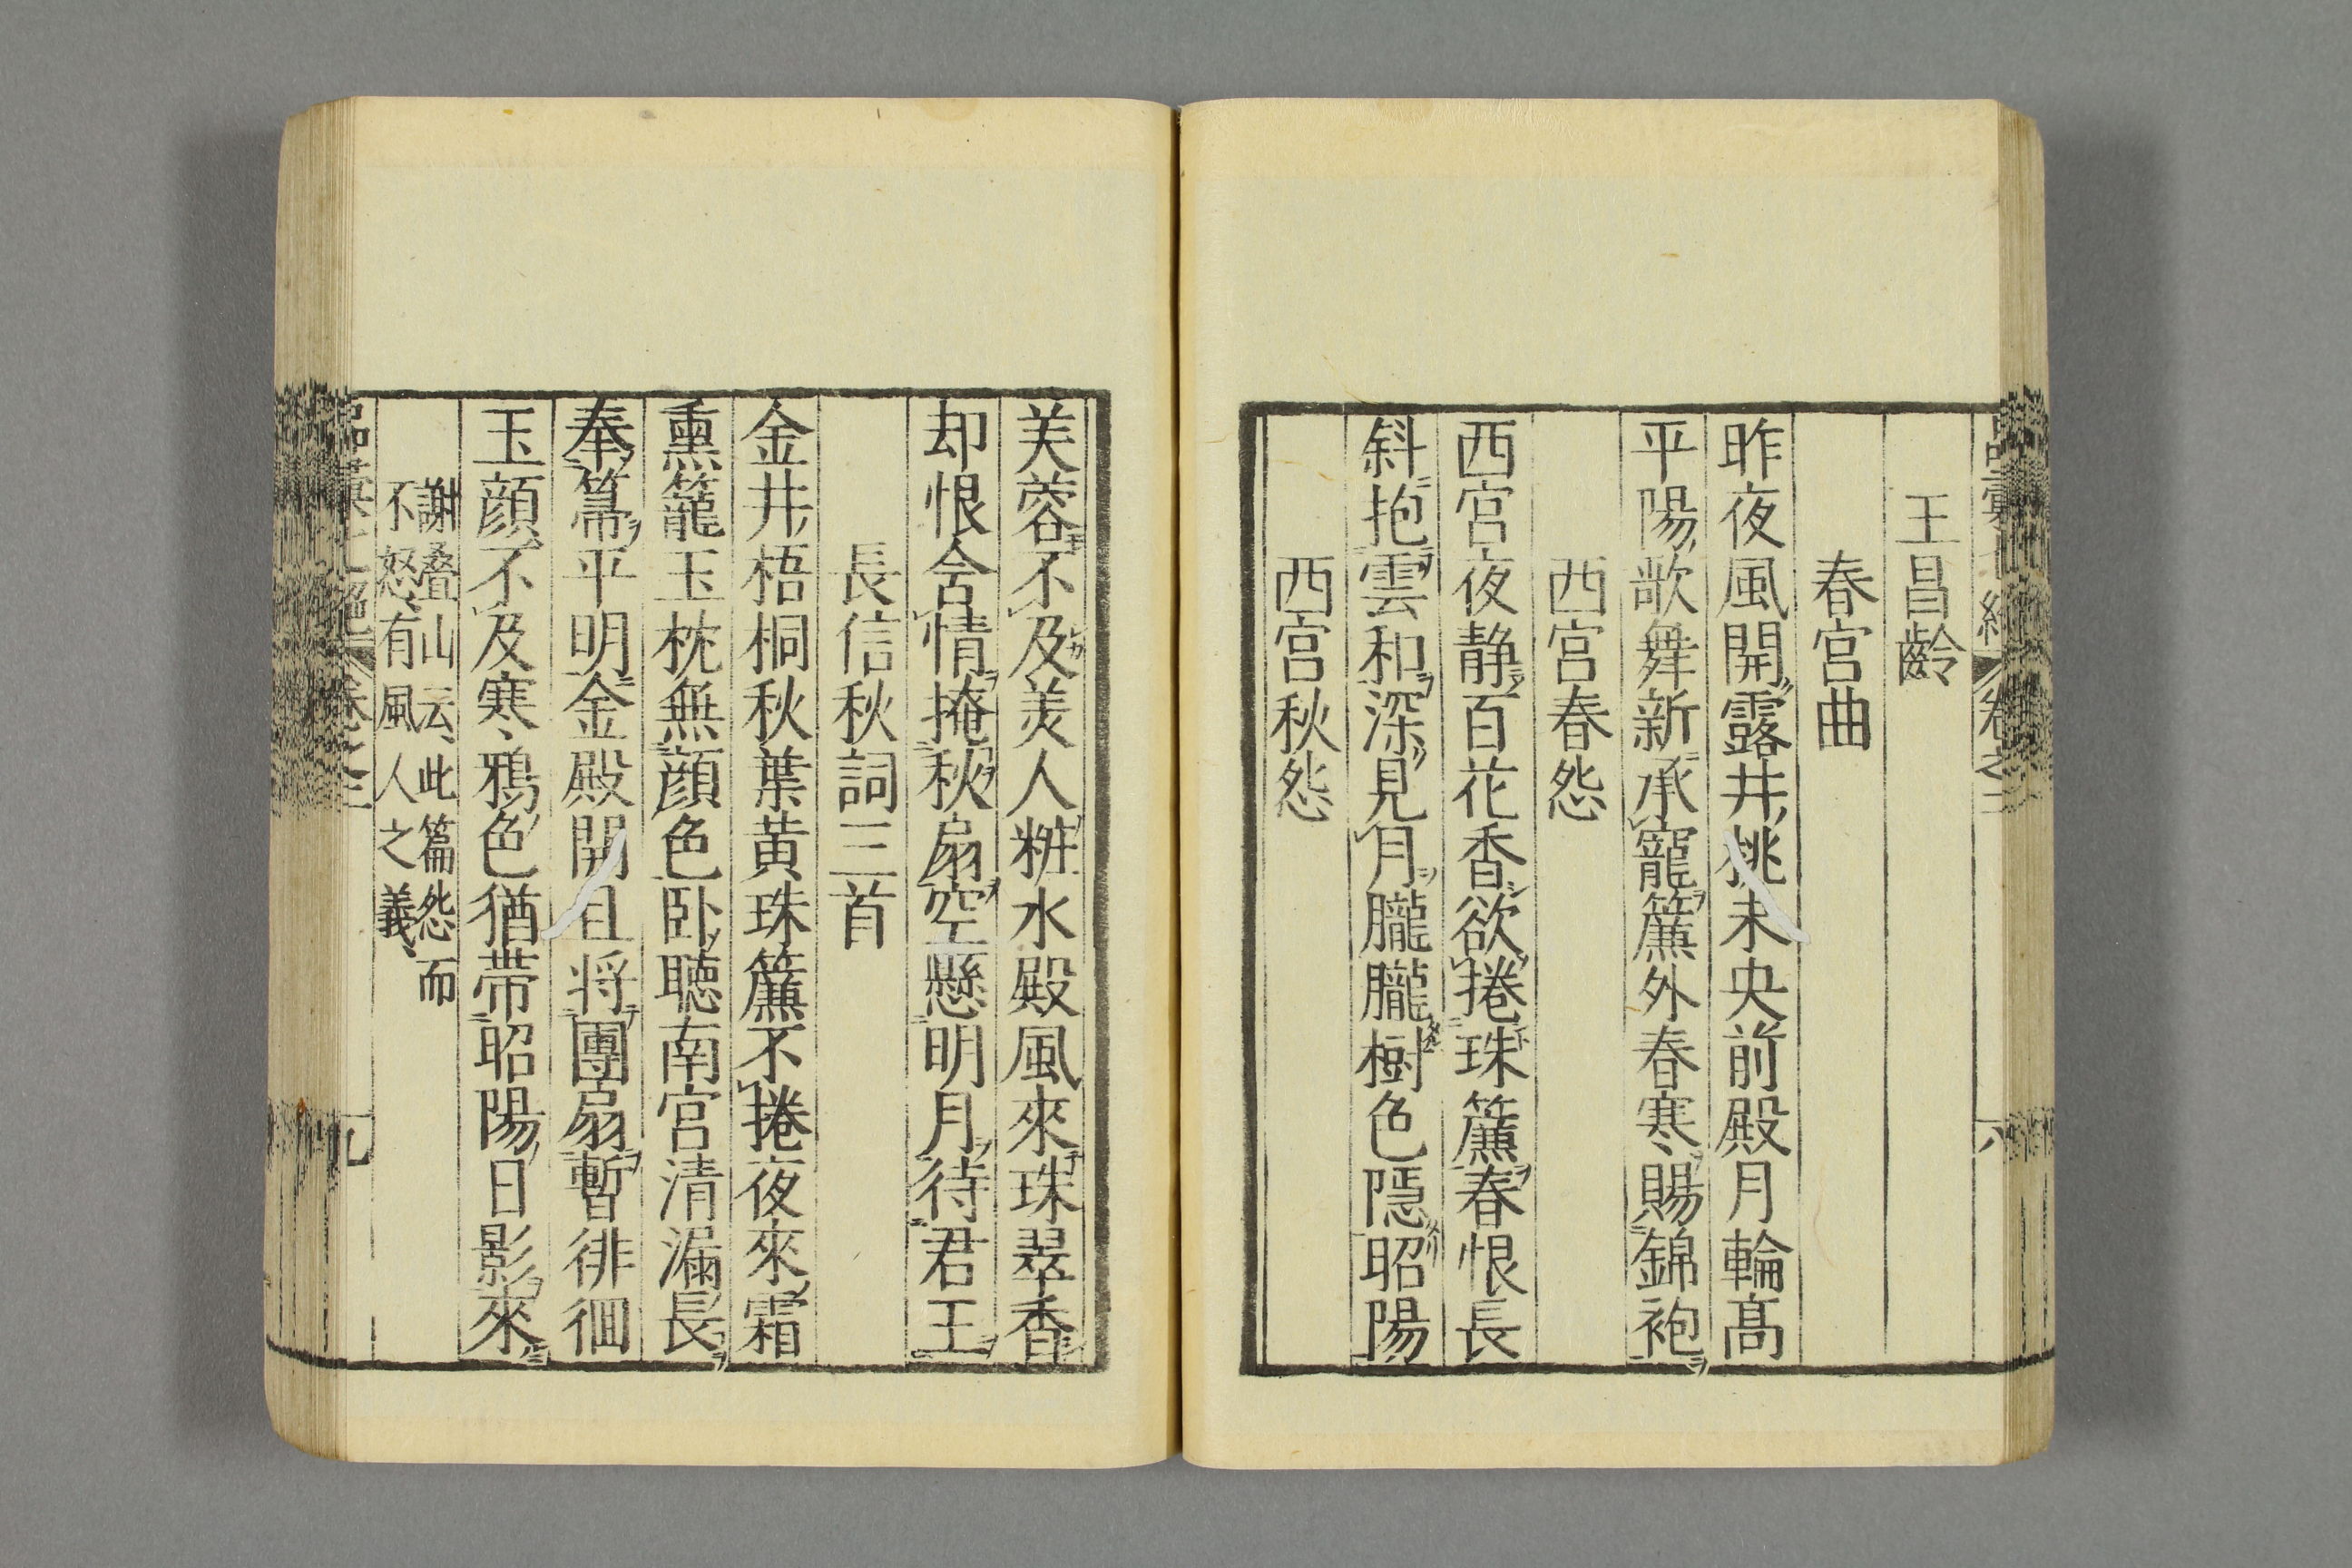 王昌齡
春宮曲
昨夜風開露井桃未央前殿月輪髙
平陽歌舞新承寵簾外春寒賜錦袍
西宮春怨
西宮夜静百花香欲捲珠簾春恨長
斜抱雲和深見月朧朧樹色隠昭陽
西宮秋怨
芙蓉不及美人粧水殿風來珠翠香
却恨含情掩秋扇空懸明月待君王
長信秋詞三首
金井梧桐秋葉黄珠簾不捲夜來霜
熏籠玉枕無顔色卧聴南宮清漏長
奉箒平明金殿開且将團扇暫徘徊
玉顔不及寒鴉色猶帯昭陽日影來
謝疊山云此篇怨而
不怒有風人之義